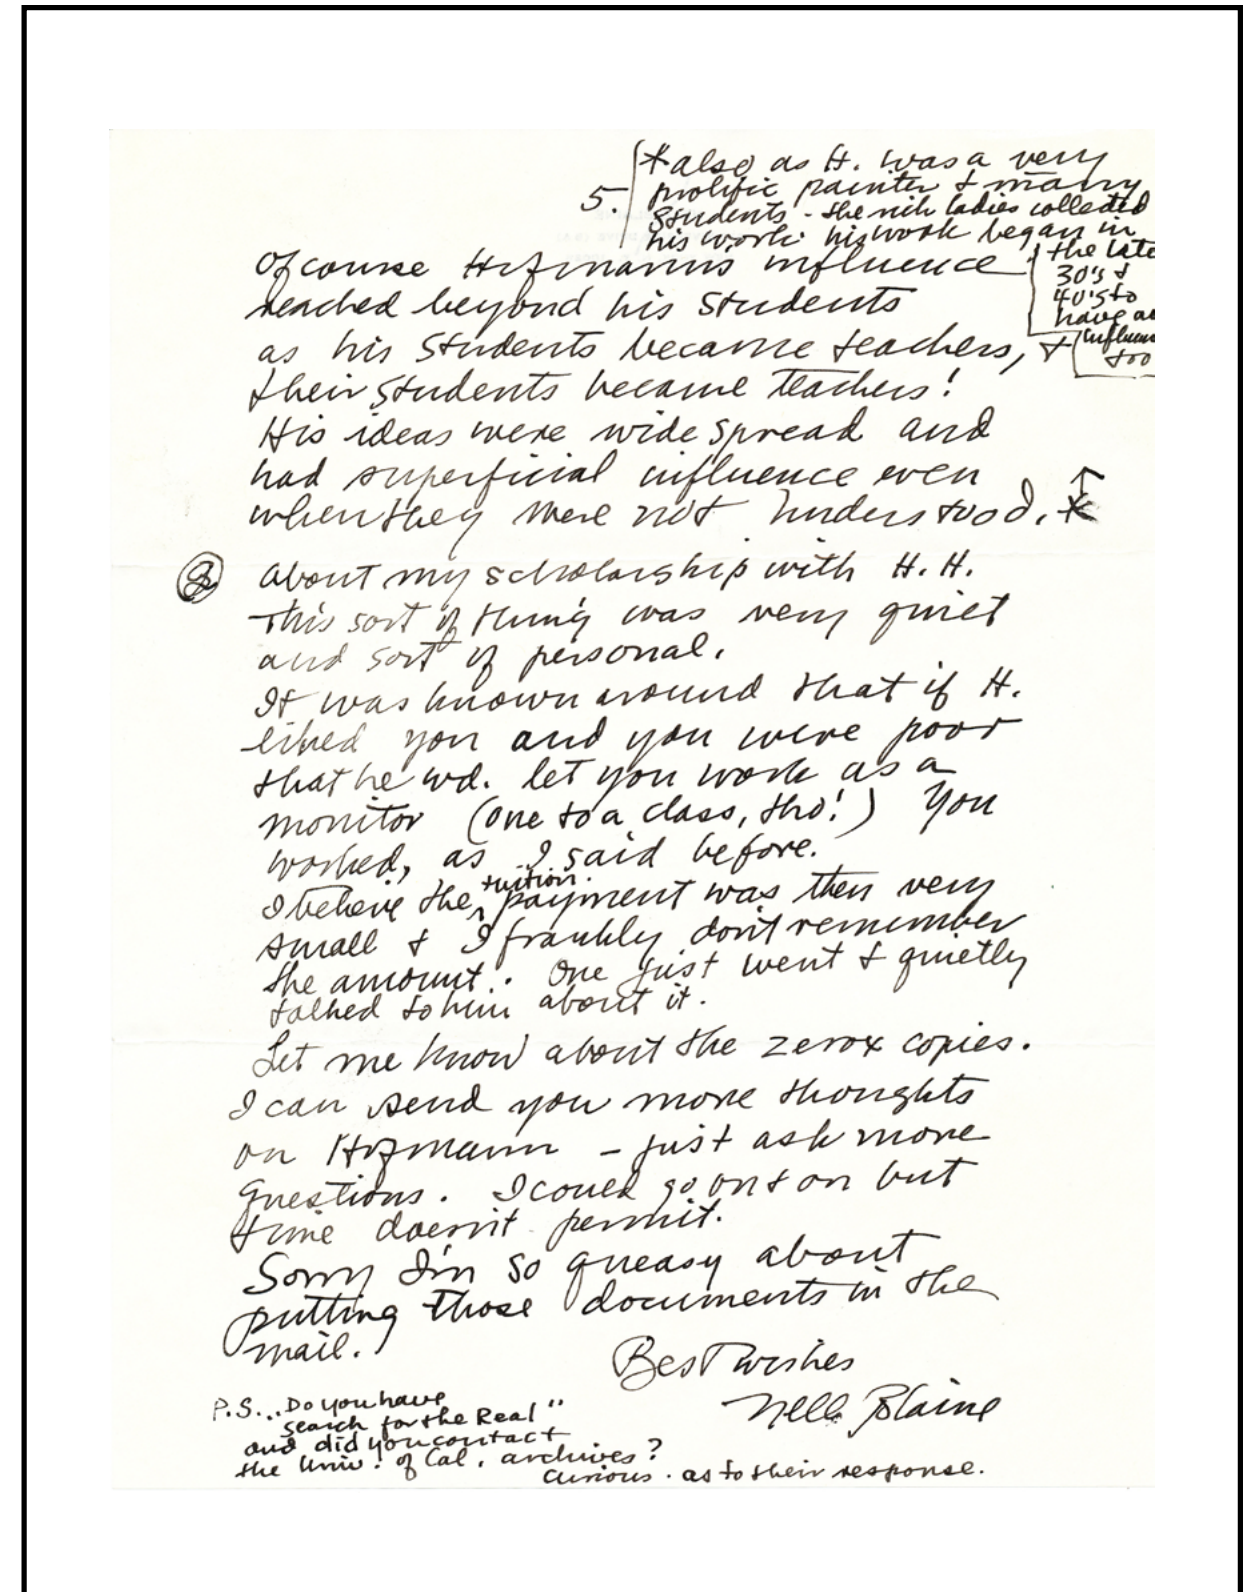 5.
*also as H. was a very
prolific painter & many
students - the rich ladies collected
his work. his work began in
the late
30's &
40's to
have an
influen
too
Of course Hofmann's influence
reached beyond his students
as his students became teachers, &
their students became teachers!
His ideas were wide spread and
had superficial influence even
when they were not understood. *
② About my scholarship with H. H.
This sort of thing was very quiet
and sort of personal.
It was known around that if H.
liked you and you were poor
that he wd. let you work as a
monitor (one to a class, tho!) You
worked, as I said before.
I believe the tuition payment was then very
small & I frankly don't remember
the amount. One just went & quietly
talked to him about it.
Let me know about the zerox copies.
I can send you more thoughts
on Hofmann - just ask more
questions. I could go on & on but
time doesn't permit.
Sorry I'm so queasy about
putting those documents in the
mail.
Best wishes
Nell Blaine
P.S... Do you have
search for the Real"
and did you contact
the Univ. of Cal. archives?
Curious as to their response.